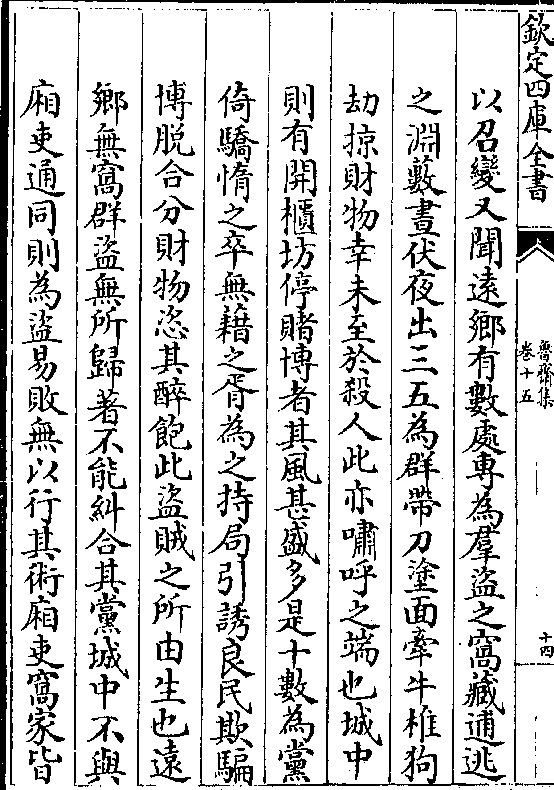 欽定四庫全書
魯齋集
卷十五
十四
以召變又聞遠鄉有數處專為羣盜之窩藏逋逃
之淵藪晝伏夜出三五為群帶刀塗面牽牛椎狗
劫掠財物幸未至於殺人此亦嘯呼之端也城中
則有開櫃坊停賭博者其風甚盛多是十數為黨
倚驕惰之卒無藉之胥為之持局引誘良民欺騙
博脫合分財物恣其醉飽此盜賊之所由生也遠
鄉無窩群盜無所歸著不能糾合其黨城中不與
廂吏通同則為盜易敗無以行其術廂吏窩家皆